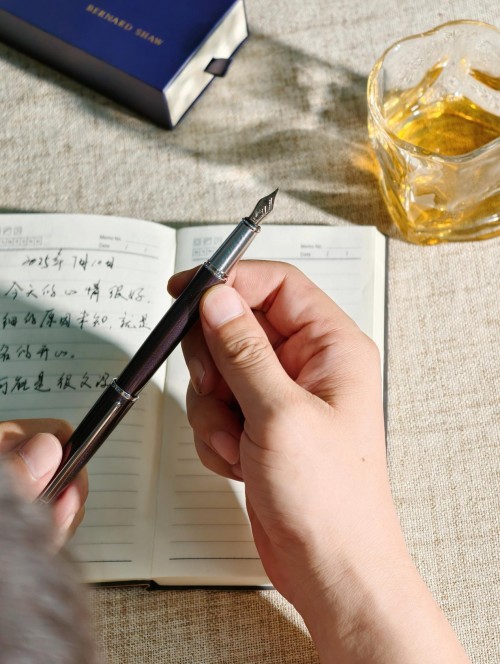 BERNARD SHAW
Memo No.
Date / /
Memo No.
Date / /
2025年7月10日
今天的心情很好.
细的原因未知,就是
的开心。
可能是很久没